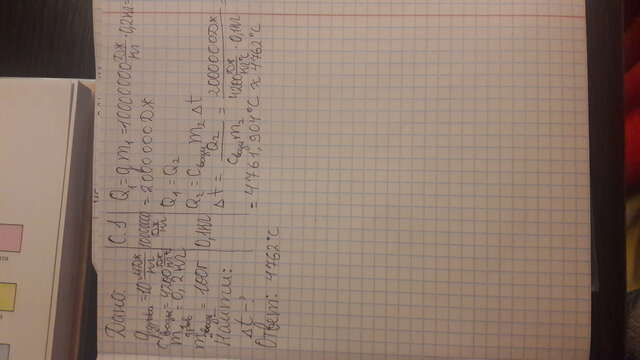 Дано:
qдрова = 10 МДж/кг
cводы = 4200 Дж/кг°C
m₁ дров = 0,2 кг
m₂ воды = 100 г
Найти:
Δt - ?
С.И
10000000 Дж/кг
0,1 кг
Q₁ = qm₁ = 10000000 Дж/кг · 0,2 кг =
= 2000000 Дж
Q₁ = Q₂
Q₂ = Cводы m₂ Δt
Δt = Q₂/Cводы m₂ = 2000000 Дж/4200 Дж/кг°C · 0,1 кг =
= 4761,904°C ≈ 4762°C
Ответ: 4762°C